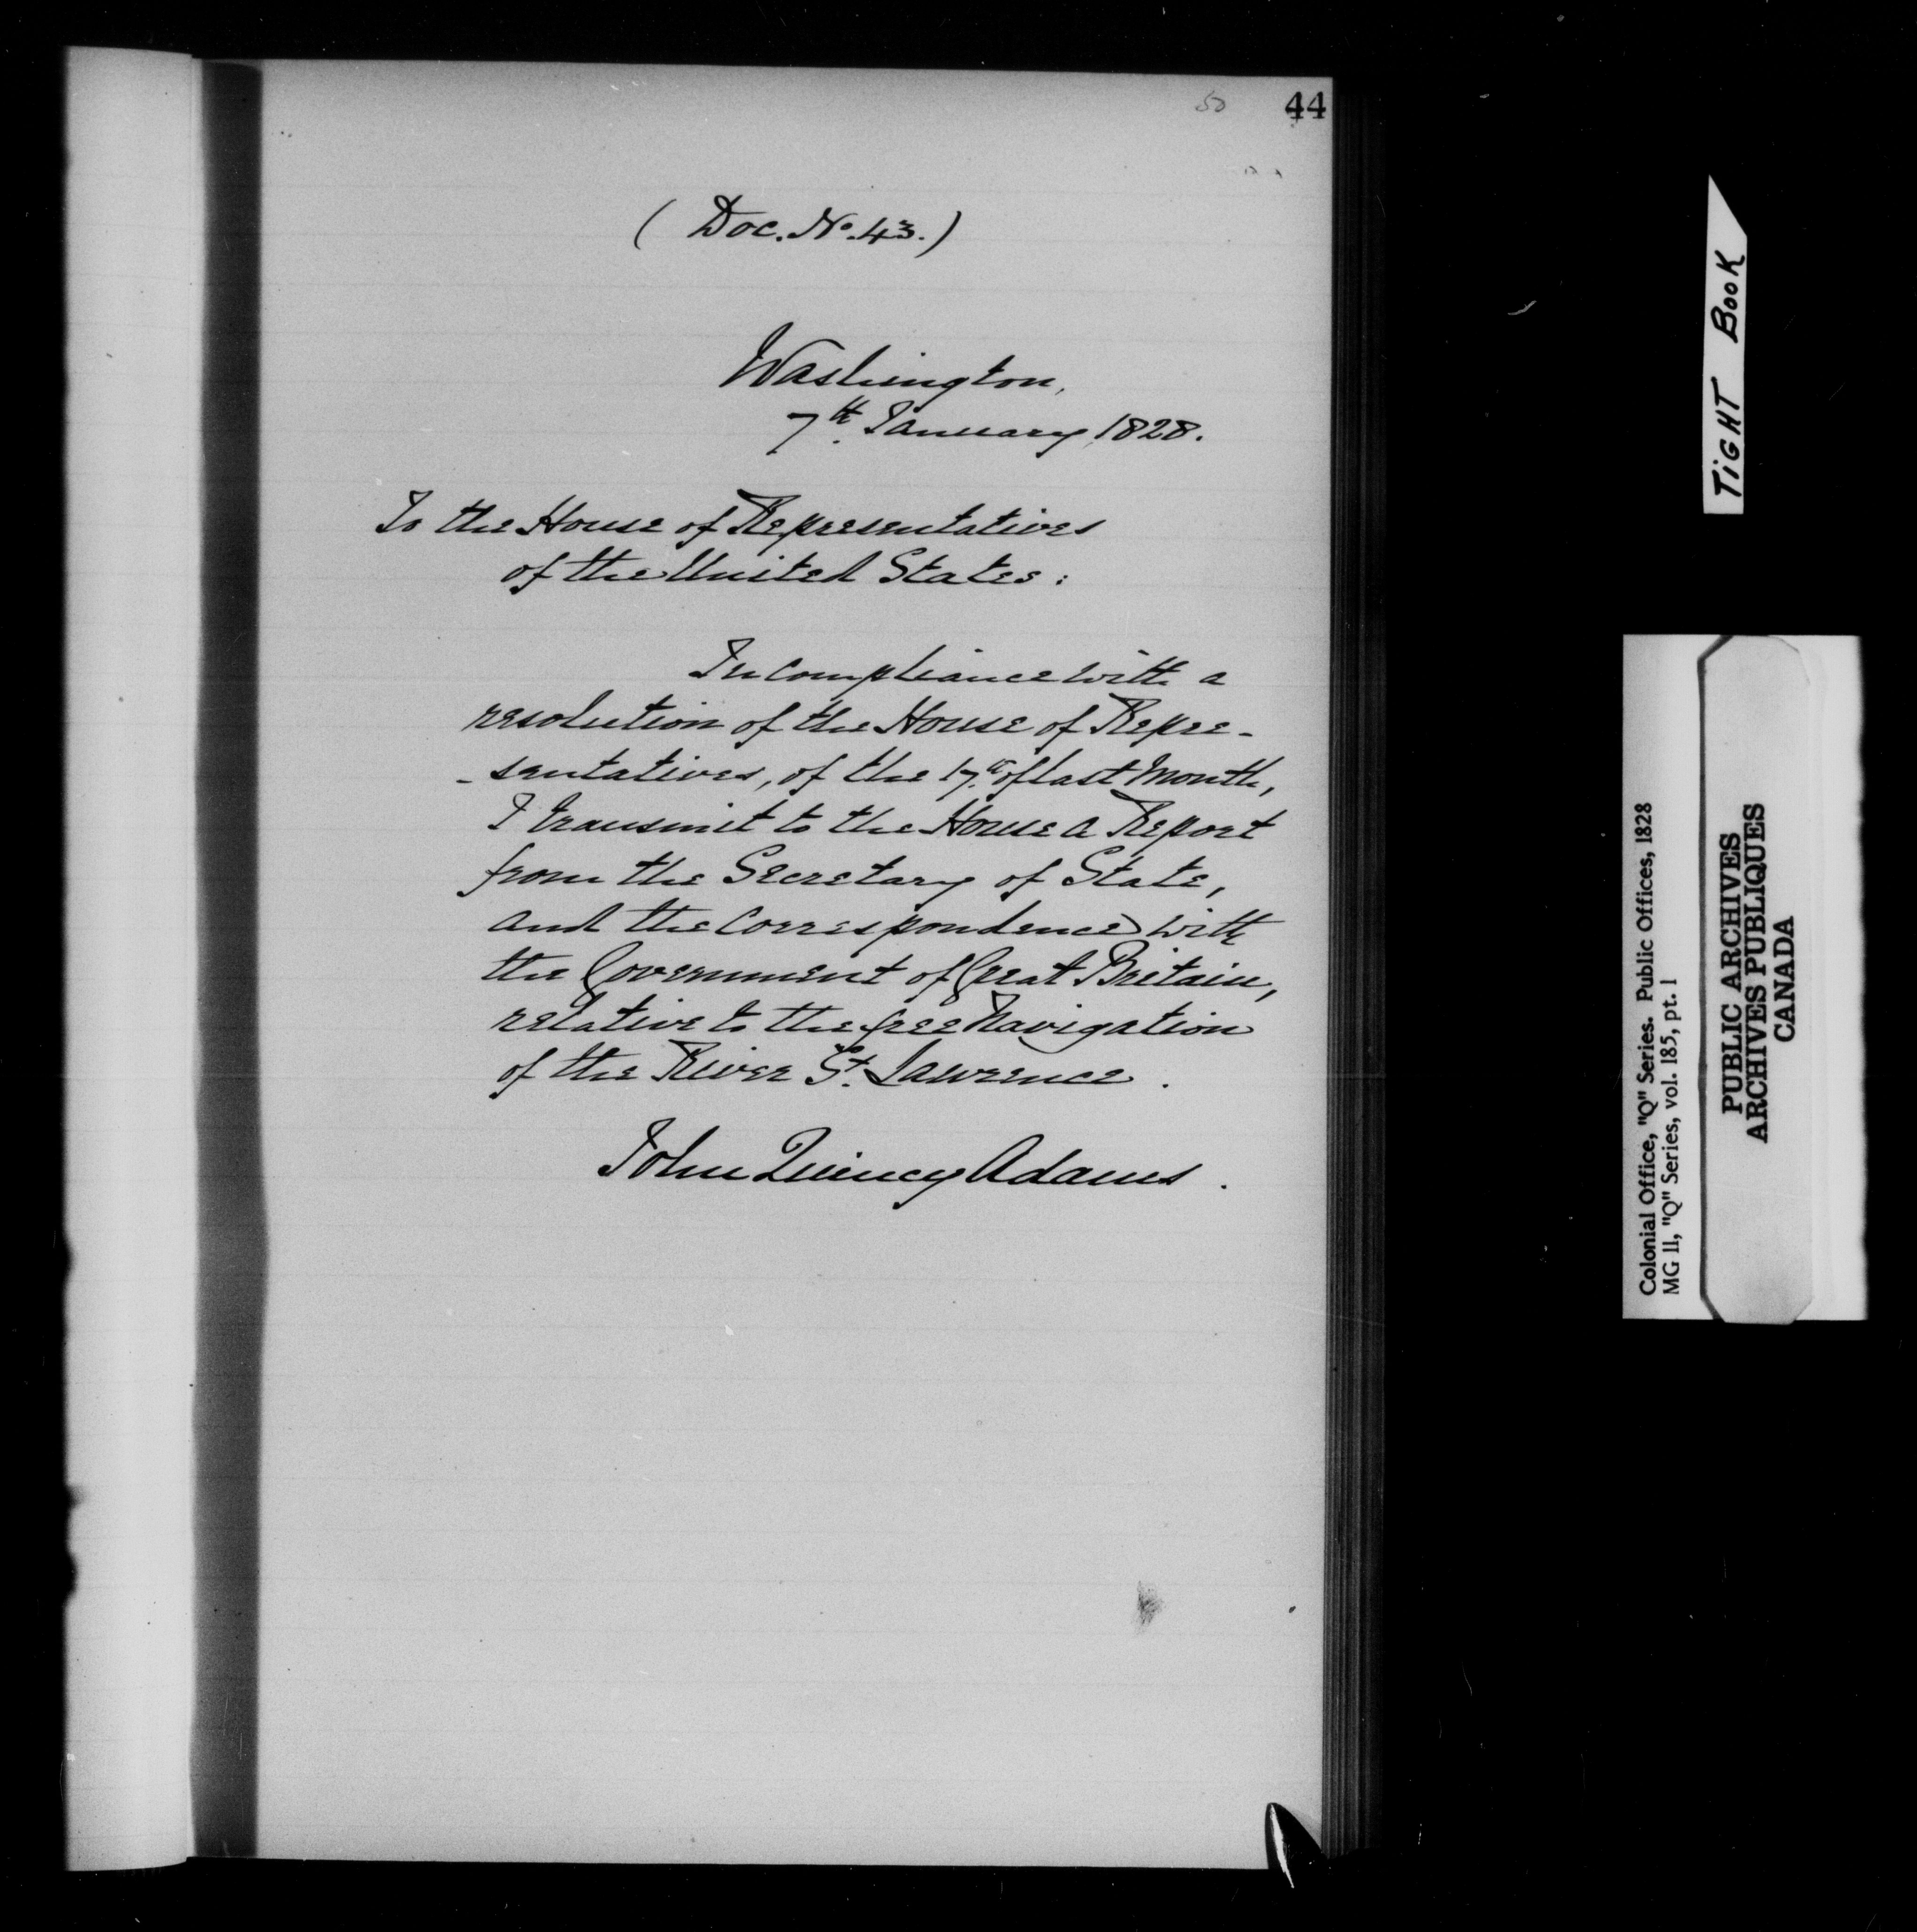 50 44
( Doc. No. 43. )
Washington,
7th January, 1828.
To the House of Representatives
of the United States:
In compliance with a
resolution of the House of Repre-
-sentatives, of the 17th of last Month,
I transmit to the House a Report
from the Secretary of State,
and the Correspondence with
the Government of Great Britain,
relative to the free Navigation
of the River St. Lawrence.
John Quincy Adams.
TIGHT BOOK
Colonial Office, "Q" Series. Public Offices, 1828
MG 11, "Q" Series, vol. 185, pt. 1
PUBLIC ARCHIVES
ARCHIVES PUBLIQUES
CANADA